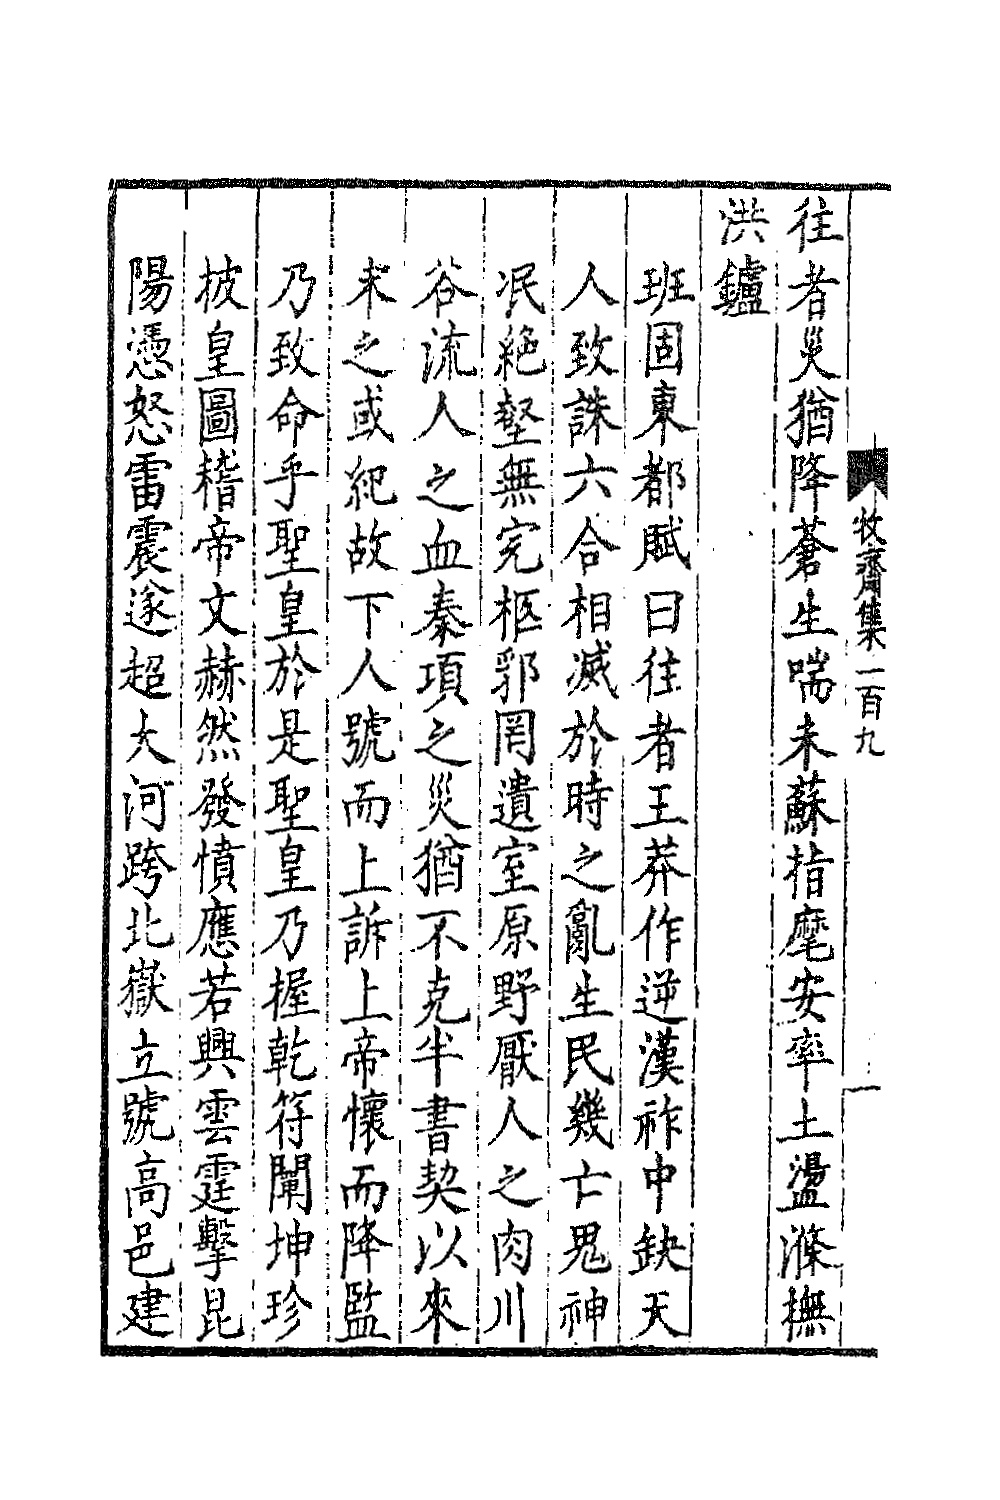 牧齋集一百九
一
往者災猶降蒼生喘未蘇指麾安率土盪滌撫
洪鑪
班固東都賦曰往者王莽作逆漢祚中缺天
人致誅六合相滅於時之亂生民幾亡鬼神
泯絕壑無完柩郛罔遺室原野厭人之肉川
谷流人之血秦項之災猶不克半書契以來
未之或紀故下人號而上訴上帝懷而降監
乃致命乎聖皇於是聖皇乃握乾符闡坤珍
披皇圖稽帝文赫然發憤應若興雲霆擊昆
陽憑怒雷震遂超大河跨北嶽立號高邑建